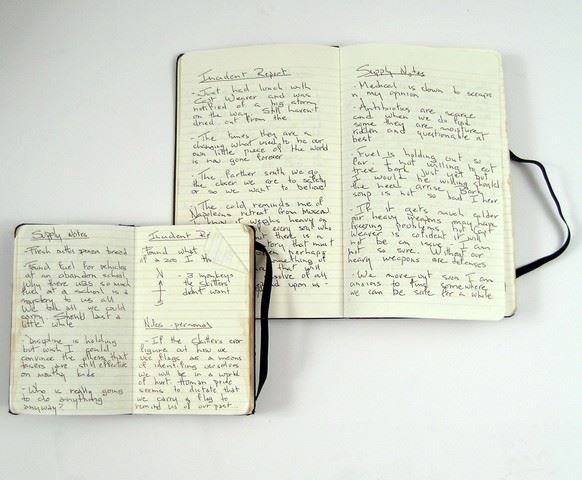 Incident Report
- Just had lunch with
Cap Weaver and was
notified of a big storm
on the way. Still haven't
dried out from the
- The times they are a
changing what used to be our
own little piece of the world
is now gone forever
- The farther south we go
the closer we are to safety
or so we want to believe
- The cold reminds me of
Napoleons retreat from Moscow
I know it weighs heavy on
every soul who
but there is a
tory that must
perhaps
something of
that will
resolve of all
upon us -
Supply Notes
- Medical is down to scraps
in my opinion
- Antibiotics are scarce
and when we do find
some they are moisture
ridden and questionable at
best
- Fuel is holding out so
far I not willing to eat
tree bark just yet but
I would be willing should
the need arise. Bark
soup is not so bad I hear
- If it gets much colder
our heavy weapons may have
freezing problems not but
Weaver is confident it will
not be an issue. I am
not so sure. Without our
heavy weapons are defences
- We move out soon I am
anxious to find somewhere
we can be safe for a while
Supply Notes
- Fresh bread
- Found fuel for vehicles
at an abandon school
Why there was so much
fuel at a school is a
mystery to us all
We took all we could
carry. Should last a
little while
- is holding
but wish I could
convince the others that
tasers are still effective
on kids
- Who is really going
to do anything
anyway?
Incident Re
Found what
at 300 I th
N
- 3 monkeys
the skitters
didnt want
S
Notes - personal
- If the Skitters ever
figure out how we
use flags as a means
of identifing ourselves
we will be in a world
of hurt. Human pride
seems to dictate that
we carry a flag to
remind us of our past